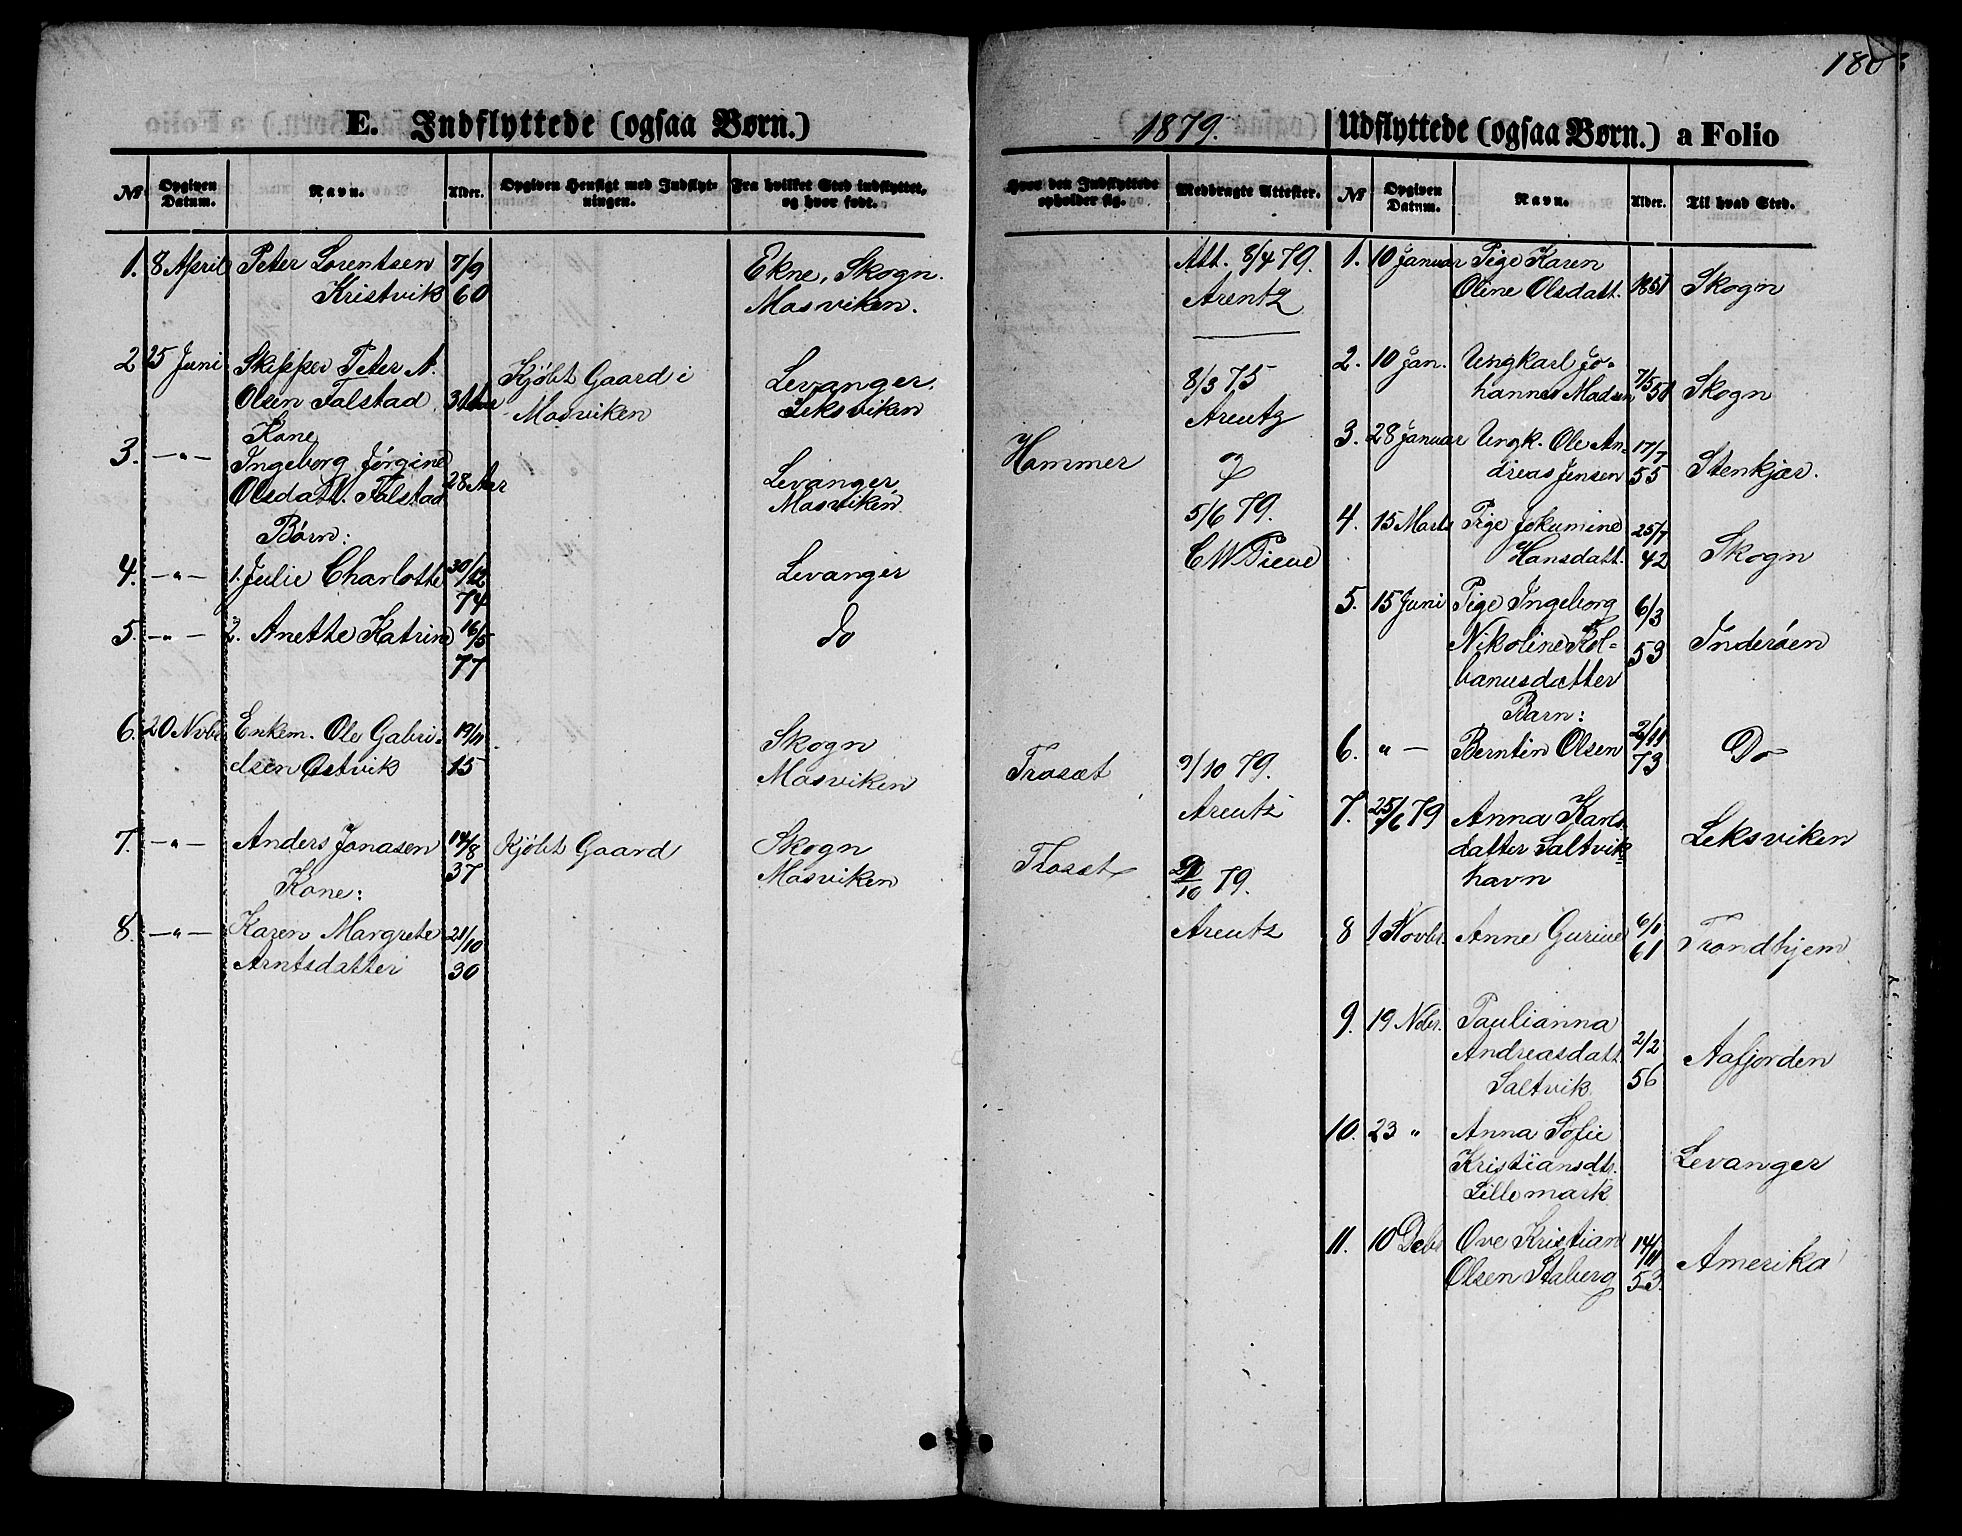 180
E. Indflyttede (ogsaa Børn.)
1879.
Udflyttede (ogsaa Børn.) a Folio
№ Opgiven Datum. Navn. Alder. Opgiven Hensigt med Indflytningen. Fra hvilket Sted indflyttet, og hvor født.
Hvor den Indflyttede opholder sig. Medbragte Attester.
№ Opgiven Datum. Navn. Alder. Til hvad Sted.
1. 8 April Peter Lorentsen 7/9 Ekne, Skogn. Att. 8/4 79.
Kristvik 60 Mosviken. Arentz
2 25 Juni Skipper Peter A. Kjøbt Gaard i Levanger. 8/3 75
Olsen Falstad Mosviken Leksviken Arentz
Kone
3. —"— Ingeborg Jørgine 28 Aar Levanger Hammer og
Olsdatt. Falstad Mosviken
Børn: 5/6 79.
4. —"— 1. Julie Charlotte 30/12 Levanger
74
5. —"— 2. Anette Katrine 16/5 do
77
6. 20 Novbr Enkem. Ole Gabri- 19/11 Skogn Trosæt 9/10 79.
elsen Østvik 15 Mosviken Arentz
7. —"— Anders Jonasen 14/8 Kjøbt Gaard Skogn Trosæt 10 79.
37 Mosviken Arentz
Kone:
8. —"— Karen Margrete 21/10
Arntsdatter 30
1. 10 Januar Pige Karen
Oline Olsdatt. 1851 Skogn
2. 10 Jan. Ungkarl Jo-
hannes Madsen 7/5 Skogn
3. 28 Januar Ungk. Ole An- 17/7
dreas Jensen 55 Stenkjær.
4. 15 Marts Pige Jokumine 25/7
Hansdatt. 42 Skogn
5. 15 Juni Pige Ingeborg 6/3
Nikoline Kol- 53 Inderøen
banusdatter
Barn:
6. " — Berntin Olsen 2/11 Do
73
7. 25/6 79 Anna Karls-
datter Saltvik- Leksviken
havn
8 1 Novbr. Anne Gurine 6/1 Trondhjem.
61
9. 19 Nobr. Paulianna
Andreasdatt. 2/2 Aafjorden
Saltvik. 56
10. 23 " Anna Sofie
Kristiansdtr. Levanger
Lillemark
11. 10 Debr Ove Kristian 14/11 Amerika
Olsen Staberg 53.